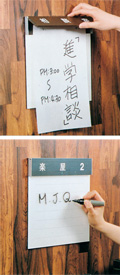 「進学相談」
PM:3:00
〜
PM:4:30
楽屋 2
M.J.Q